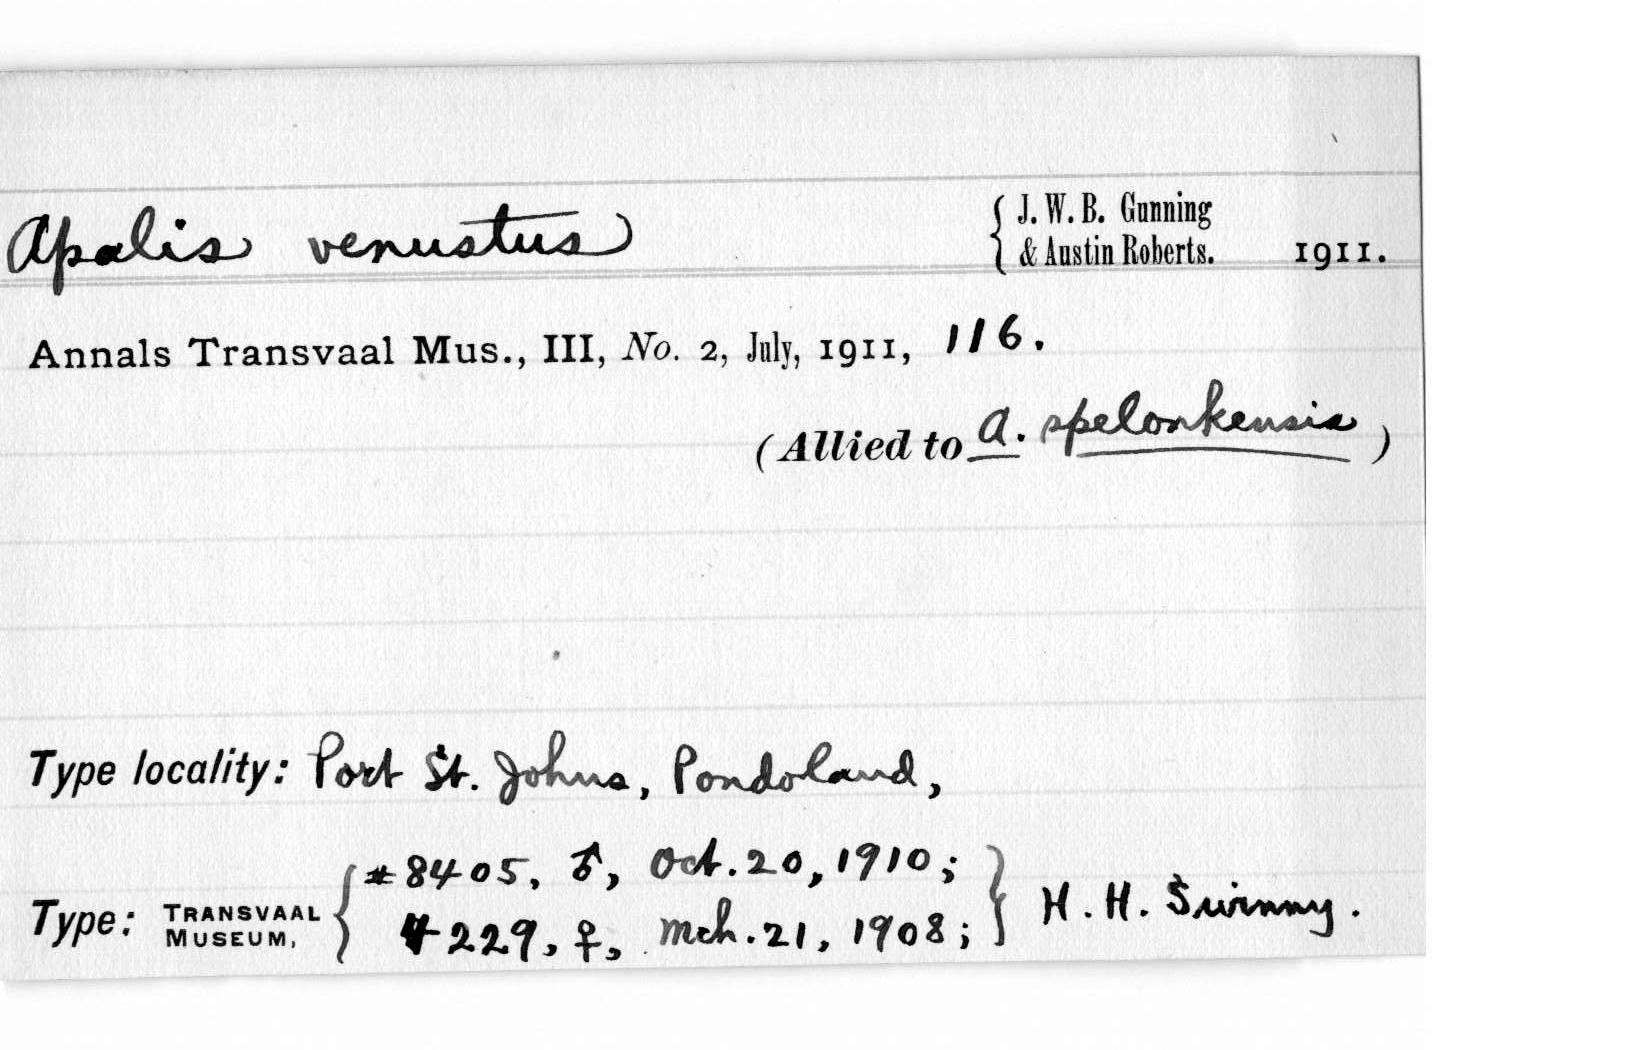 Apalis venustus { J. W. B. Gunning
& Austin Roberts. 1911.
Annals Transvaal Mus., III, No. 2, July, 1911, 116.
(Allied to A. spelonkensis)
Type locality: Port St. Johns, Pondoland,
Type: TRANSVAAL MUSEUM, { #8405, ♂, Oct. 20, 1910;
4229, ♀, Mch. 21, 1908; } H. H. Swinny.